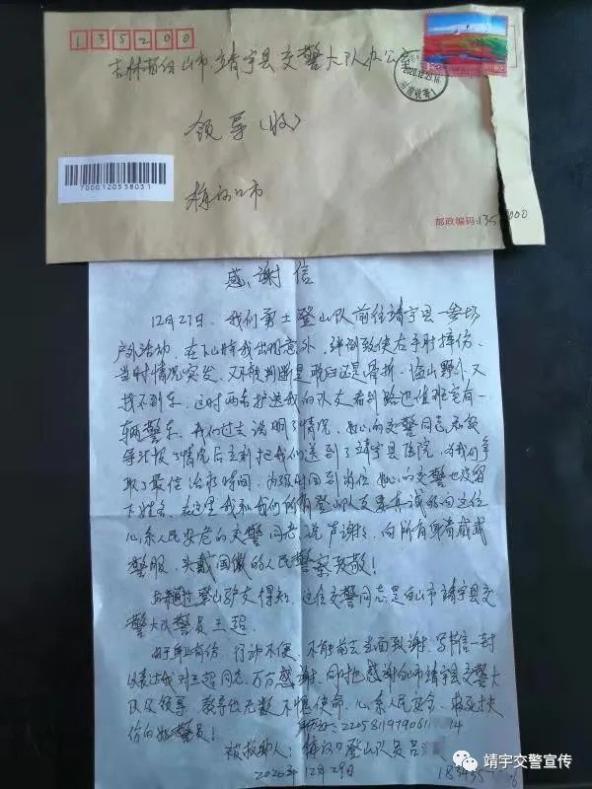 135200
吉林省白山市靖宇县交警大队办公室
领导(收)
700012055803
梅河口市
邮政编码:135000
感谢信
12月27日,我们勇士登山队前往靖宇县一参场
户外活动,在下山时我出现意外,绊倒致使右手肘摔伤,
当时情况突发,又不能判断是脱臼还是骨折,深山野外又
找不到车,这时两名护送我的队友看到路边值班室有一
辆警车,我们过去说明了情况,
汇报了情况后立刻把我们送到了靖宇县医院,为我们争
取了最佳治疗时间,
下姓名,在这里我和我们所有登山队友要真诚的向这位
心系人民安危的交警同志说声谢谢,向所有身着
警服,头戴国徽的人民警察致敬!
后来通过登山驴友得知,这位交警同志是白山市靖宇县交
警大队警员王超。
由于手上有伤,行动不便,不能前去当面致谢,写信一封
以表达我对王超同志万分感谢,同时也感谢白山市靖宇县交警大
队及领导,教导出无数不惧使命,心系人民安全,
你的好警员!
被救助人:梅河口登山队员吕
2020年12月29日
靖宇交警宣传